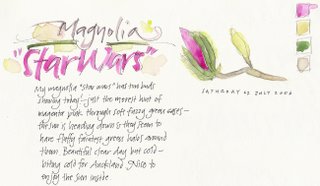 Magnolia
"Star Wars"
My magnolia "star wars" has two buds
showing today - just the merest hint of
magenta pink through soft fuzzy green cases -
the sun is heading down & they seem to
have fluffy faintest green halos around
them. Beautiful clear day but cold -
biting cold for Auckland. Nice to
enjoy the sun inside
SATURDAY 02 JULY 2006